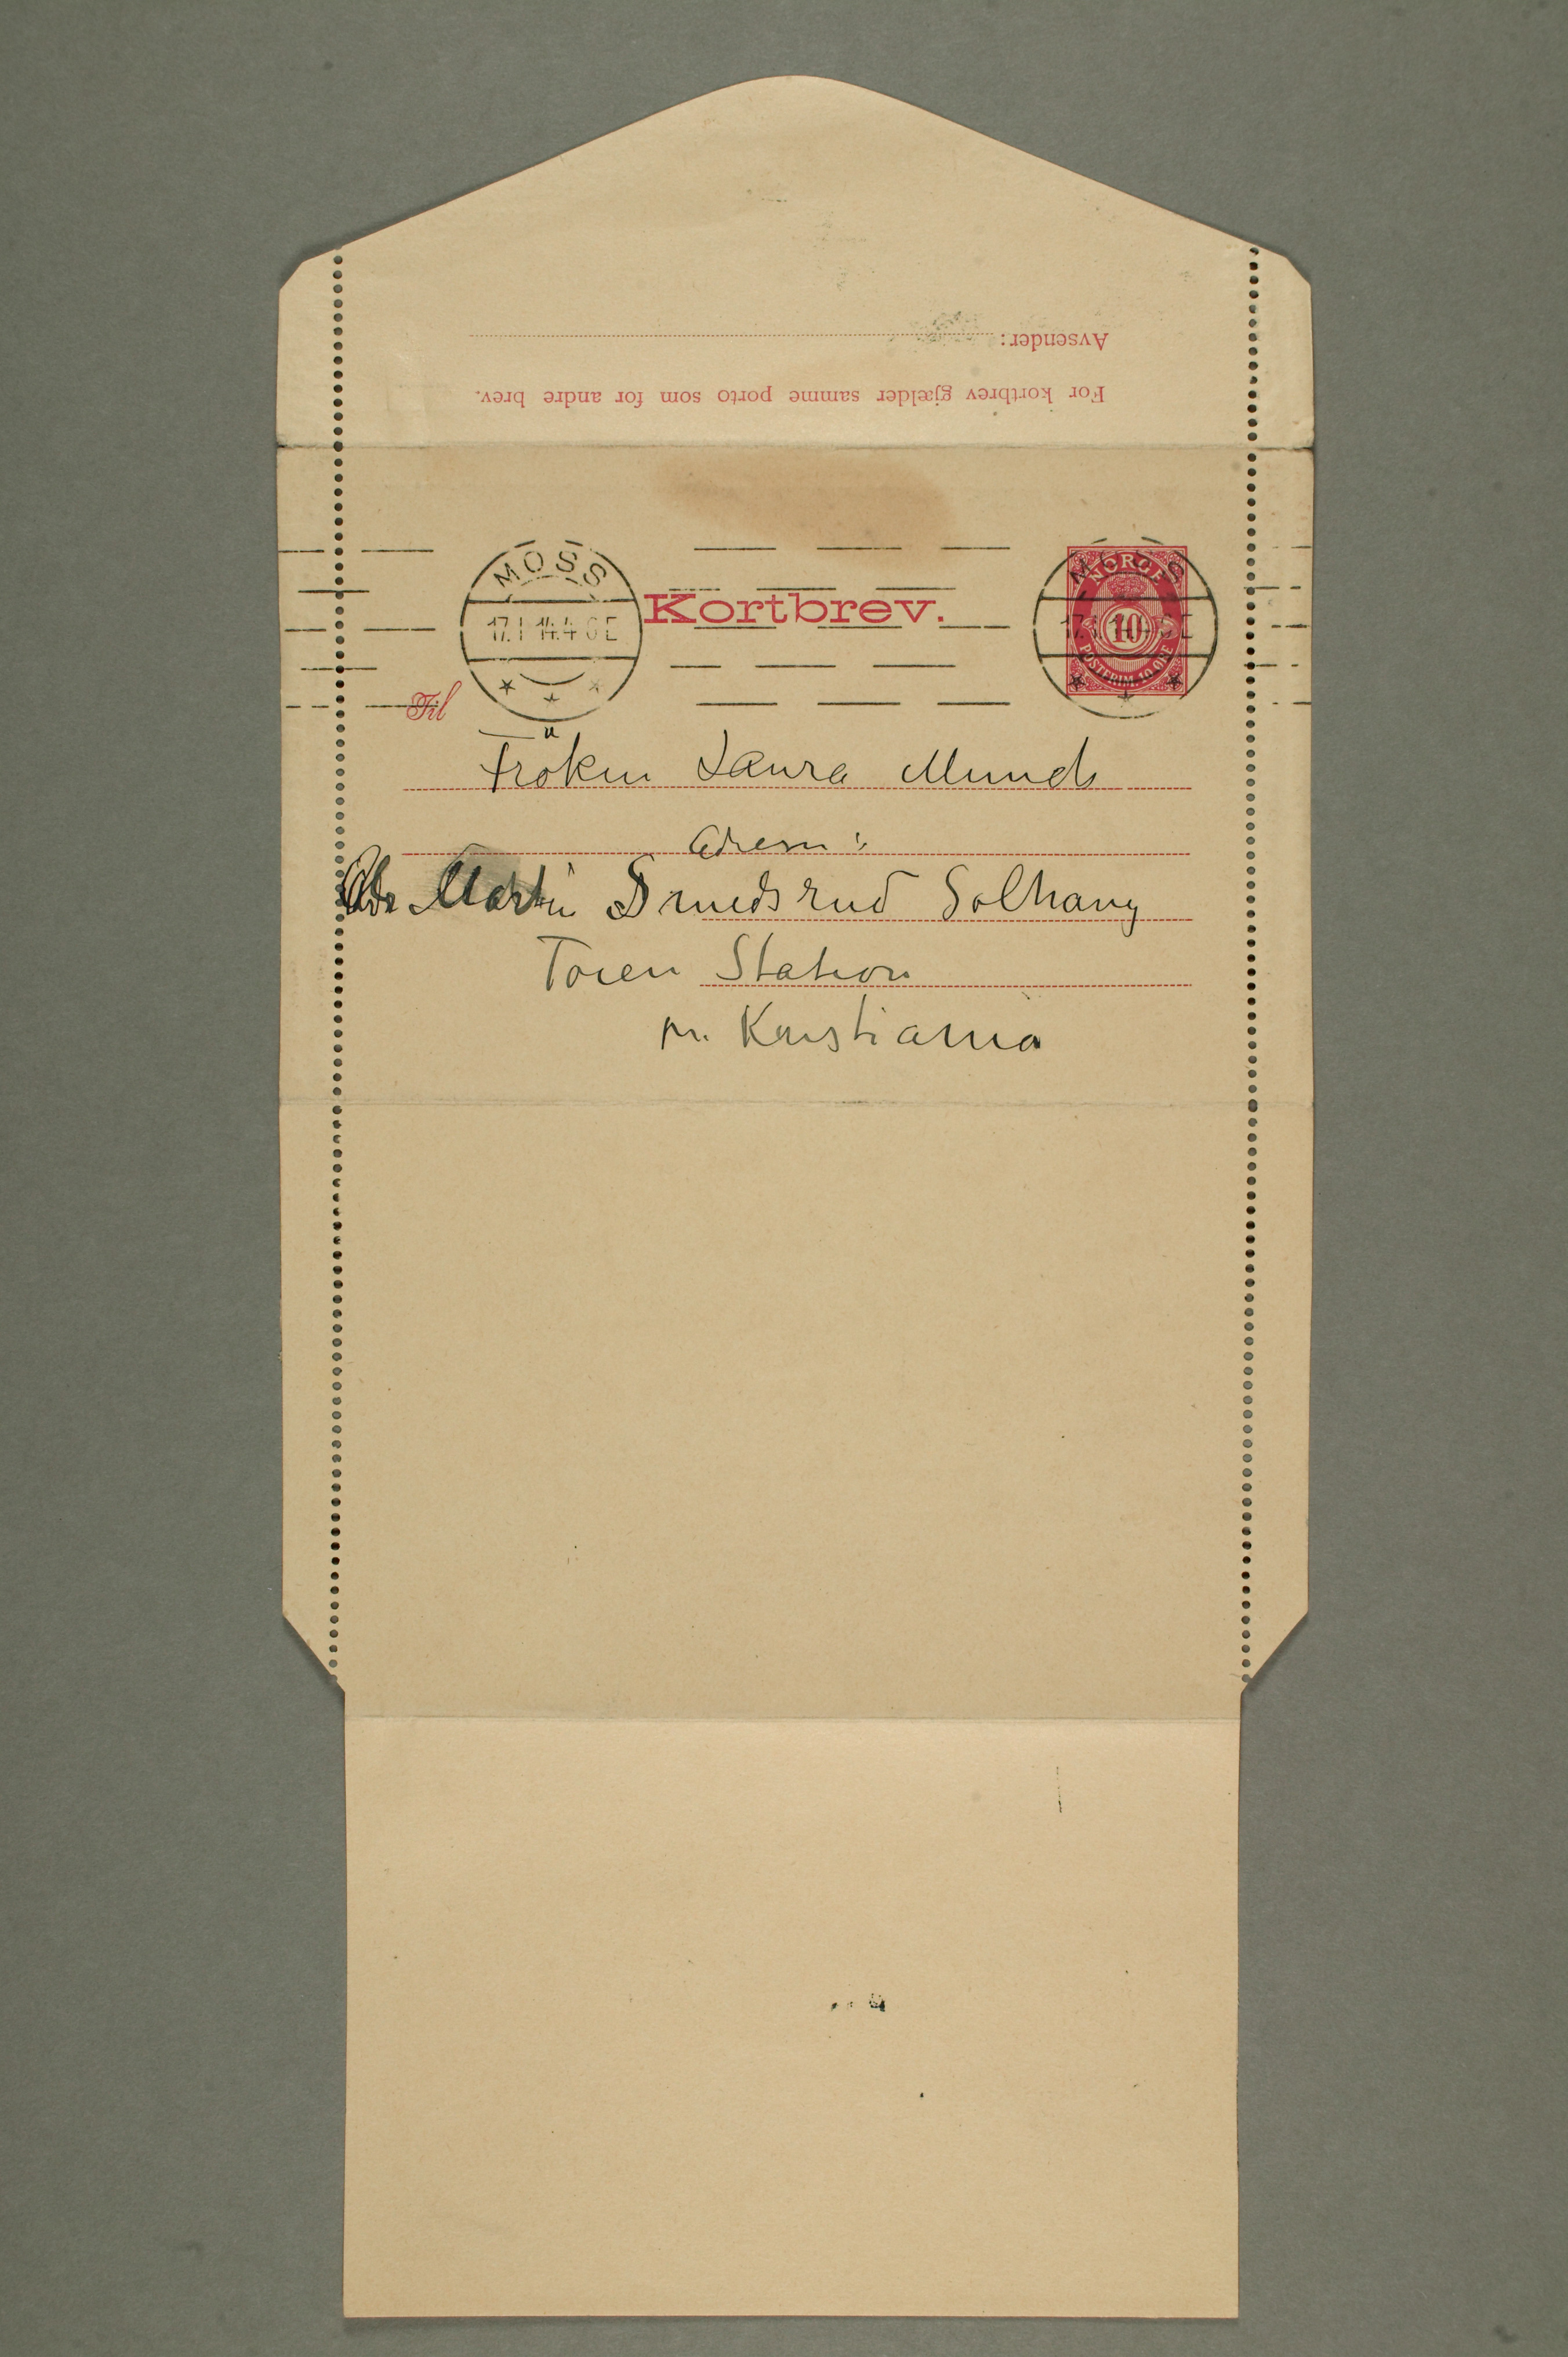 Avsender:
For kortbrev gjælder samme porto som for andre brev.
MOSS
17.1 14.4
Kortbrev.
MOSS
NORGE
10
POSTFRIM. 10 ØRE
Til
Fröken Laura Munch
Adresse:
Adr Martin Smedsrud Solhaug
Toien Station
pr. Kristiania